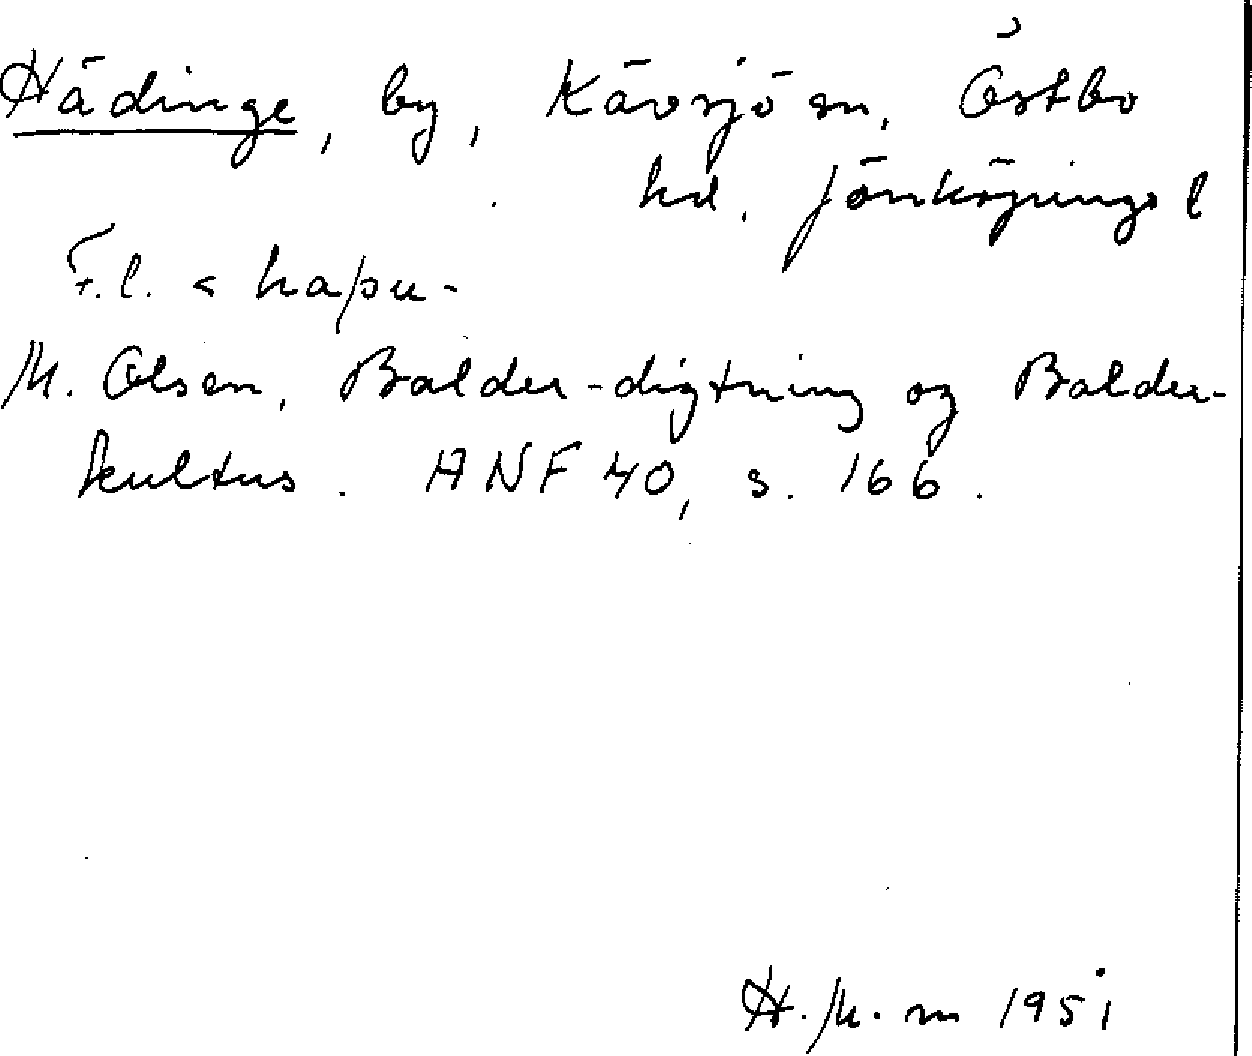 Hädinge, by, Kävsjö sn, Östbo
hd. Jönköpings l
F.l. < haþu-
M. Olsen, Balder-digtning og Balder-
kultus. ANF 40, s. 166.
H.M. m 1951